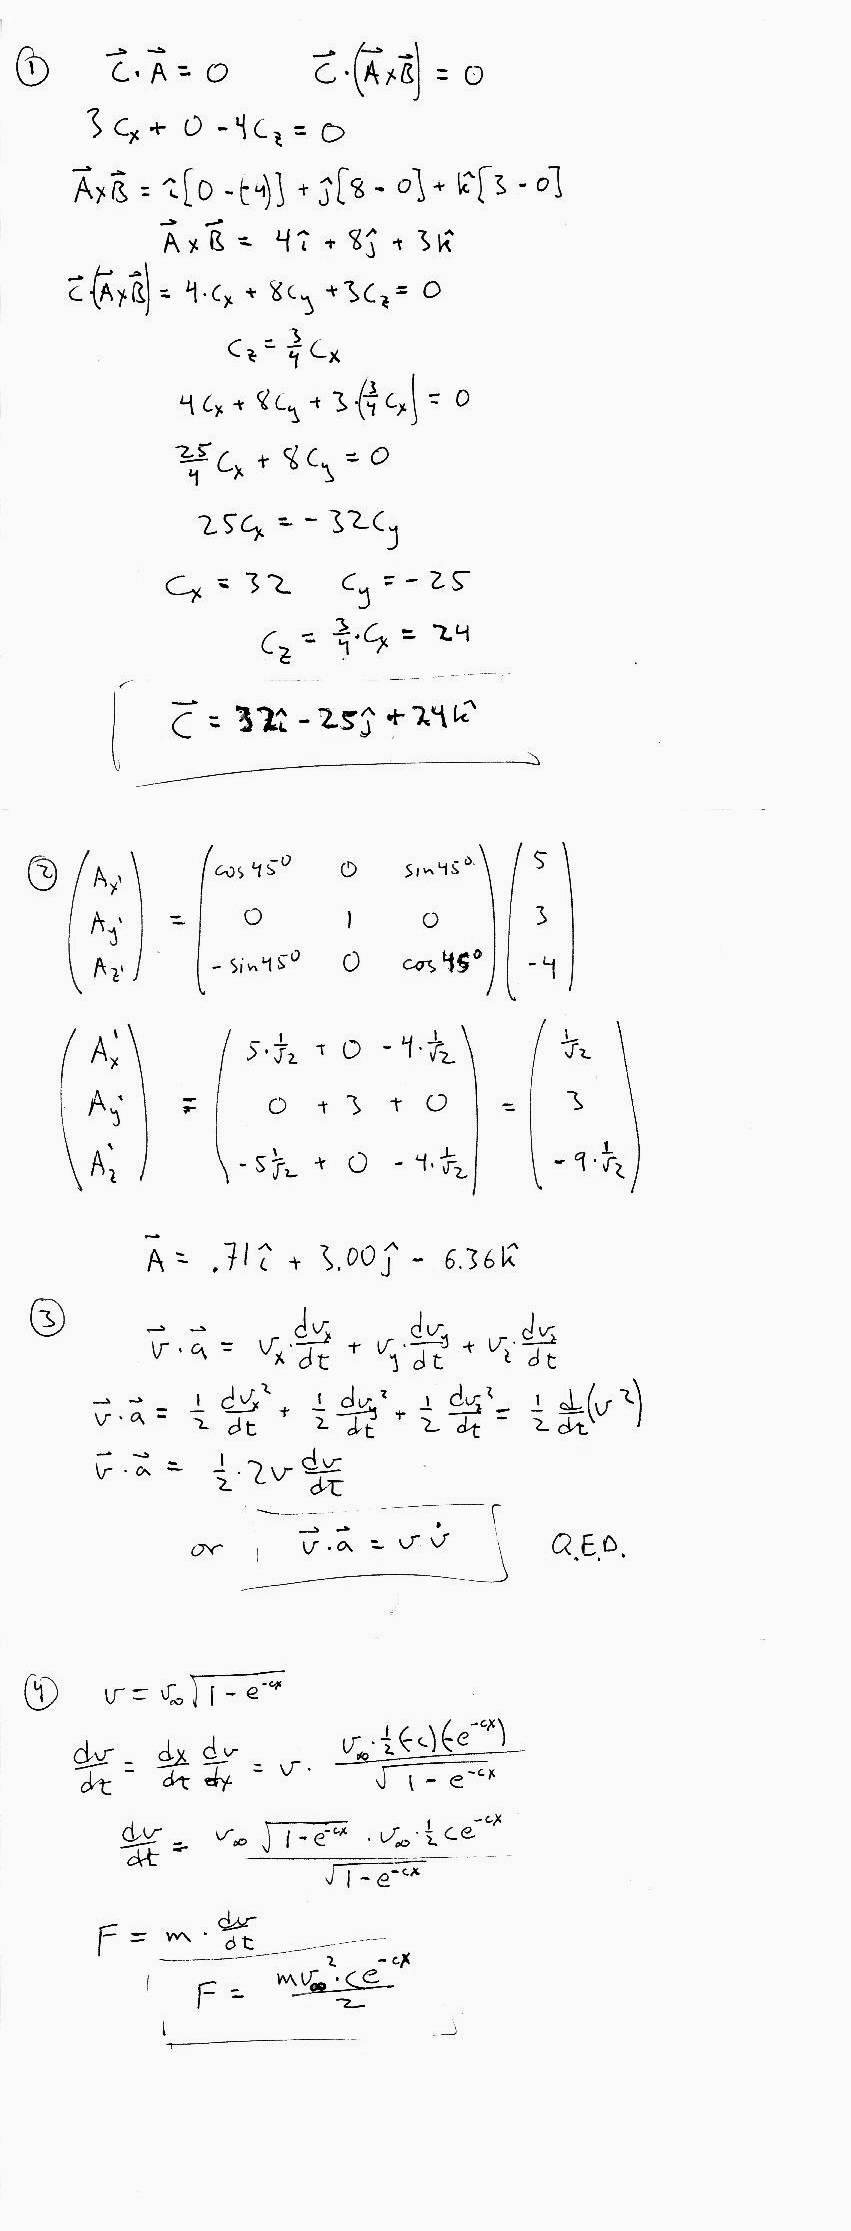 ① C⃗·A⃗ = 0   C⃗·(A⃗×B⃗) = 0
3Cx + 0 - 4Cz = 0
A⃗×B⃗ = î[0-(-4)] + ĵ[8-0] + k̂[3-0]
A⃗×B⃗ = 4î + 8ĵ + 3k̂
C⃗·(A⃗×B⃗) = 4·Cx + 8Cy + 3Cz = 0
Cz = 3/4 Cx
4Cx + 8Cy + 3·(3/4 Cx) = 0
25/4 Cx + 8Cy = 0
25Cx = -32Cy
Cx = 32   Cy = -25
Cz = 3/4·Cx = 24
C⃗ = 32î - 25ĵ + 24k̂
② (Ax') = (cos45° 0 sin45°) (5)
(Ay') (0 1 0) (3)
(Az') (-sin45° 0 cos45°) (-4)
(Ax') = (5·1/√2 + 0 - 4·1/√2) = (1/√2)
(Ay') (0 + 3 + 0) (3)
(Az') (-5 1/√2 + 0 - 4·1/√2) (-9·1/√2)
A⃗ = .71î + 3.00ĵ - 6.36k̂
③ v⃗·a⃗ = vx·dvx/dt + vy·dvy/dt + vz·dvz/dt
v⃗·a⃗ = 1/2 dvx²/dt + 1/2 dvy²/dt + 1/2 dvz²/dt = 1/2 d/dt(v²)
v⃗·a⃗ = 1/2·2v dv/dt
or v⃗·a⃗ = v v̇   Q.E.D.
④ v = v∞√(1-e^-cx)
dv/dt = dx/dt dv/dx = v · v∞·1/2(-c)(-e^-cx)/√(1-e^-cx)
dv/dt = v∞√(1-e^-cx)·v∞·1/2 ce^-cx/√(1-e^-cx)
F = m·dv/dt
F = mv∞²·ce^-cx/2